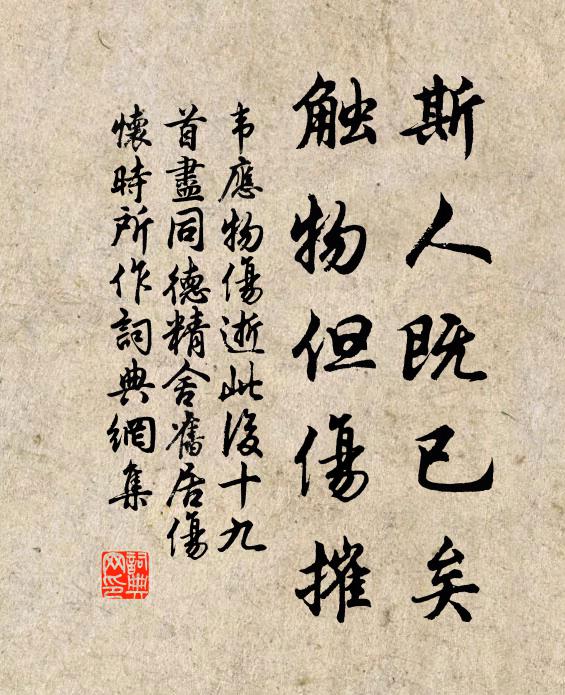 斯人既已矣
触物但傷摧
韦應物傷逝此後十九
首盡同德精舍舊居傷
懷時所作詞典網集
詞典
网印